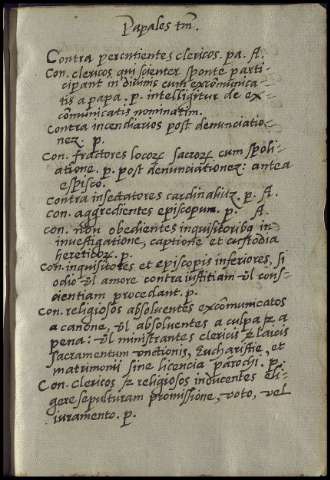 Papales tm̄.
Contra percutientes clericos. pa. A.
Con. clericos qui scienter sponte parti-
cipant in diuinis cum excōmunica-
tis a papa. p. intelligitur de ex-
cōmunicatis nominatim.
Contra incendiarios post denunciatio-
neꝫ. p.
Con. fractores locoꝝ sacroꝝ cum spoli-
atione. p. post denunciationeꝫ: antea
espisco.
Contra insectatores cardinaliuꝫ. p. A.
con. aggredientes episcopum. p. A.
con. non obedientes inquisitoribꝫ in
inuestigatione, captione et custodia
hereticoꝝ. p.
Con. inquisitores et episcopis inferiores, si
odio vl amore contra iustitiam vl cons-
cientiam procedant. p.
Con. religiosos absoluentes excōmunicatos
a canone, vl absoluentes a culpa et a
pena: vl ministrantes clericis et laicis
sacramentum vnctionis, Eucharistie, et
matrimonii sine licencia parochi. p.
Con. clericos et religiosos inducentes eli-
gere sepulturam promissione, voto, vel
iuramento. p.